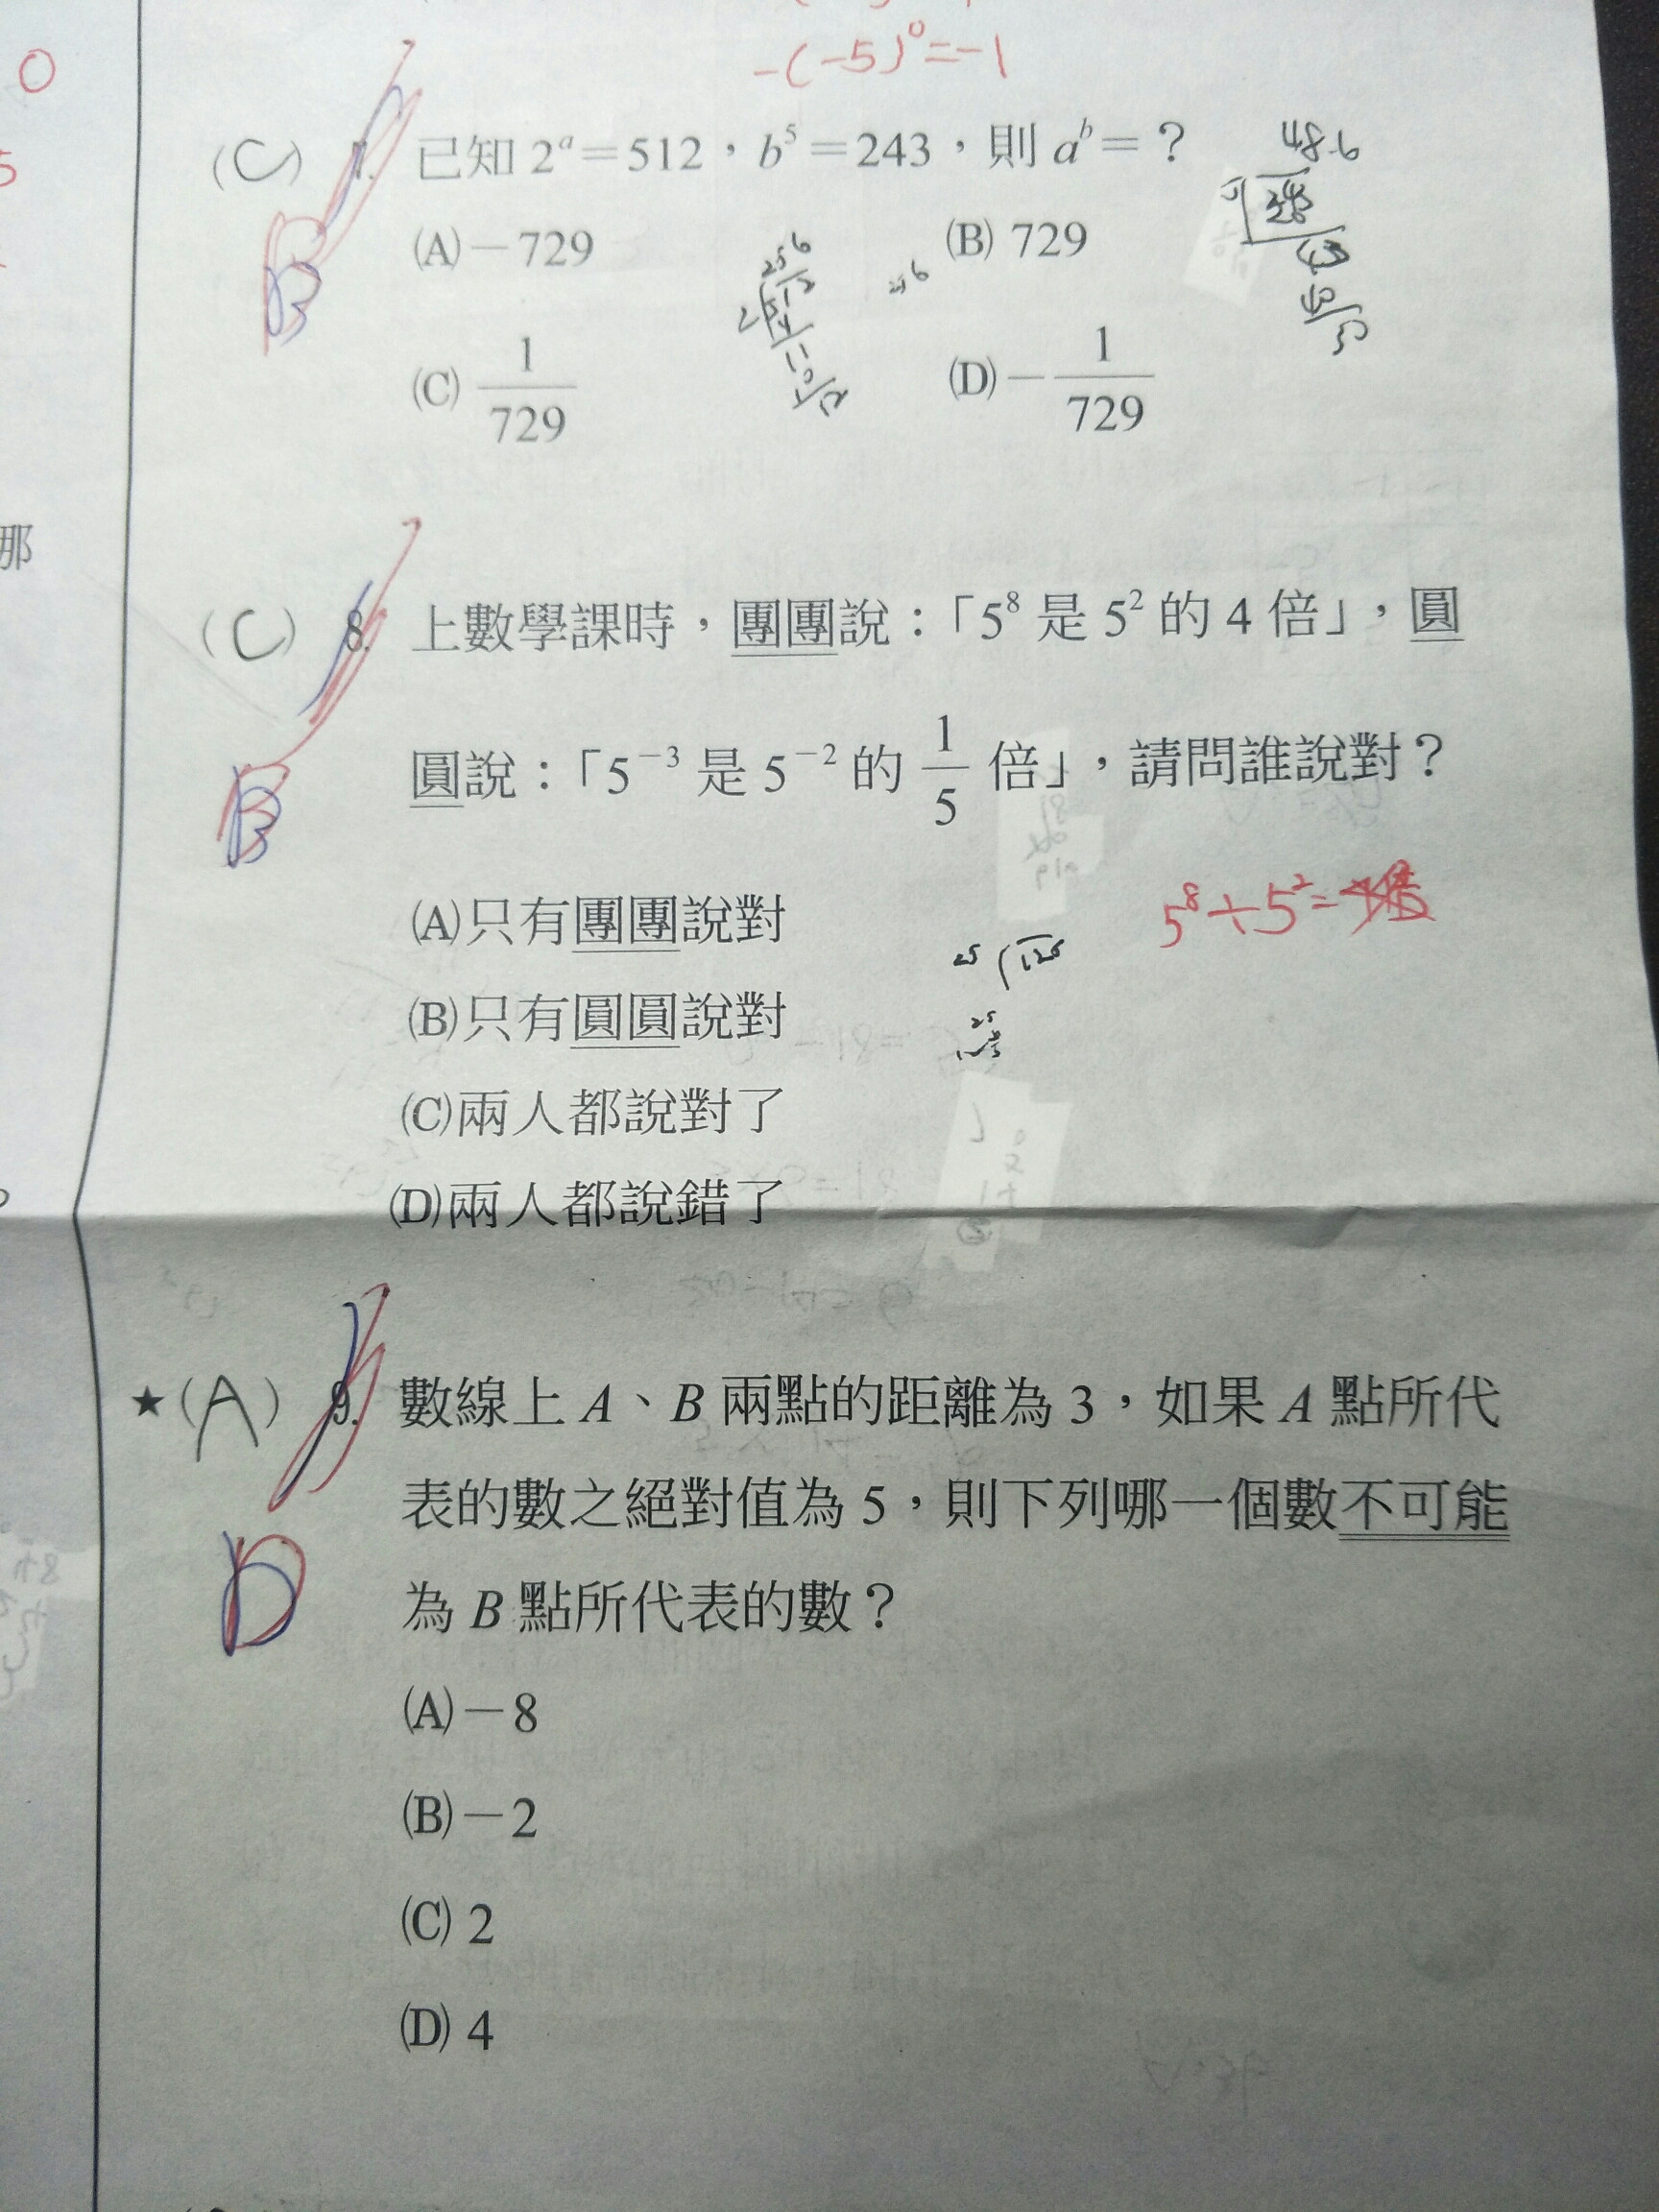 0
-(-5)⁰=-1
5
(C) 7. 已知 2ᵃ=512，b⁵=243，則 aᵇ=？
48.6
(A)－729
(B) 729
256
(C) 1/729
(D)－1/729
B
那
(C) 8. 上數學課時，團團說：「5⁸ 是 5² 的 4 倍」，圓
圓說：「5⁻³ 是 5⁻² 的 1/5 倍」，請問誰說對？
B
5⁸÷5²=
(A)只有團團說對
25 125
(B)只有圓圓說對
(C)兩人都說對了
(D)兩人都說錯了
★(A) 9. 數線上 A、B 兩點的距離為 3，如果 A 點所代
表的數之絕對值為 5，則下列哪一個數不可能
D
為 B 點所代表的數？
(A)－8
(B)－2
(C) 2
(D) 4